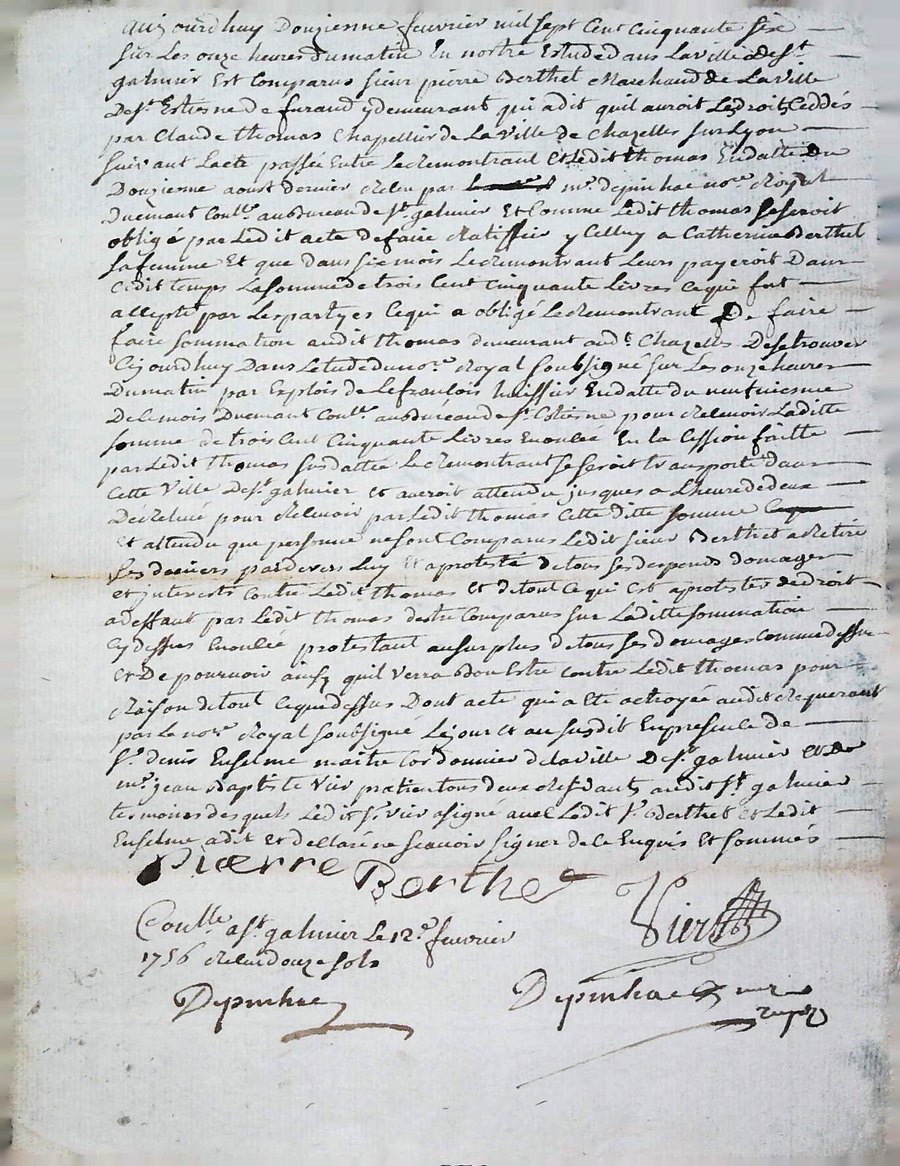 aujourdhuy Douzienne feuvrier mil sept Cent Cinquante six
sur Les onze heures du matin En nottre Estude dans La ville de st
galmier Est Comparus sieur pierre Berthet Marchand de La ville
de st Estienne de furand y demeurant qui a dit quil auroit Le droit Ceddés
par Claude thomas Chapellier de La ville de Chazelles sur Lyon
suivant Lacte passée Entre Le Remontrant Et Ledit thomas En datte du
Douzienne aoust dernier Reçu par me. Depinhac nore. Royal
Duemant Conllé. au bureau de st galmier Et Comme Ledit thomas se seroit
obligé par Ledit acte de faire Ratiffier y Celluy a Catherine Berthet
sa femme Et que dans six mois Le Remontrant Leurs payeroit Dans
Cedit temps La somme de trois Cent Cinquante Livres Ce qui fut
accepté par Les partyes Ce qui a obligé Le Remontrant De faire
faire sommation audit thomas demeurant aud t. Chazelles De se trouver
Cejourdhuy Dans Letude du nore. Royal soubsigné sur Les onze heures
Du matin par Explois de Lefrançois huissier En datte du neufuiesme
De Ce mois Duemant Conllé. au bureau de st. Estienne pour Recevoir Laditte
somme de trois Cent Cinquante Livres Enoncée En la Cession faitte
par Ledit thomas susdattée Le Remontrant se seroit transporté dans
Cette Ville De st. galmier Et auroit attendu jusques a Lheure de deux
De Relevé pour Recevoir par Ledit thomas Cette ditte somme
Et attendu que personne ne sont Comparus Ledit sieur Berthet a Retiré
Ses deniers pardevers Luy Et a protesté de tous ses despends domages
et interests Contre Ledit thomas Et de tout Ce qui Est a protester de droit
a deffaut par Ledit thomas destre Comparus sur Laditte sommation
Cy dessus Enoncée protestant au surplus de tous ses domages Comme dessus
Et De pourvoir ainsy quil verra bon Estre Contre Ledit thomas pour
Raison de tout Ce que dessus Dont acte qui a Eté actroyée audit Requerant
par Le nore. Royal soubsigné Le jour et an susdit En presence de
sr. denis Enselme maitre Cordonnier de la ville De st. galmier et de
mre. jean Baptiste Vier pratitien tous deux Residants audit st. galmier
temoins desquels Ledit sr. Vier a signé avec Ledit sr. Berthet et Ledit
Enselme a dit Et Declaré ne scavoir signer de Ce Enquis Et sommés
Pierre Berthet
Vier
Conllé a st. galmier Le 12e. feuvrier
1756 Reçu douze sols
Depinhac
Depinhac nore
royal